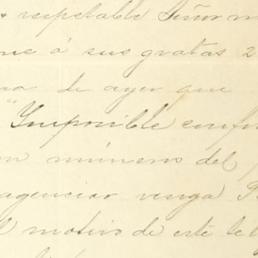 respetable Señor m
me á sus gratas 2
de ayer que
"Imposible confor
números del
agenciar venga
l motivo de este tel